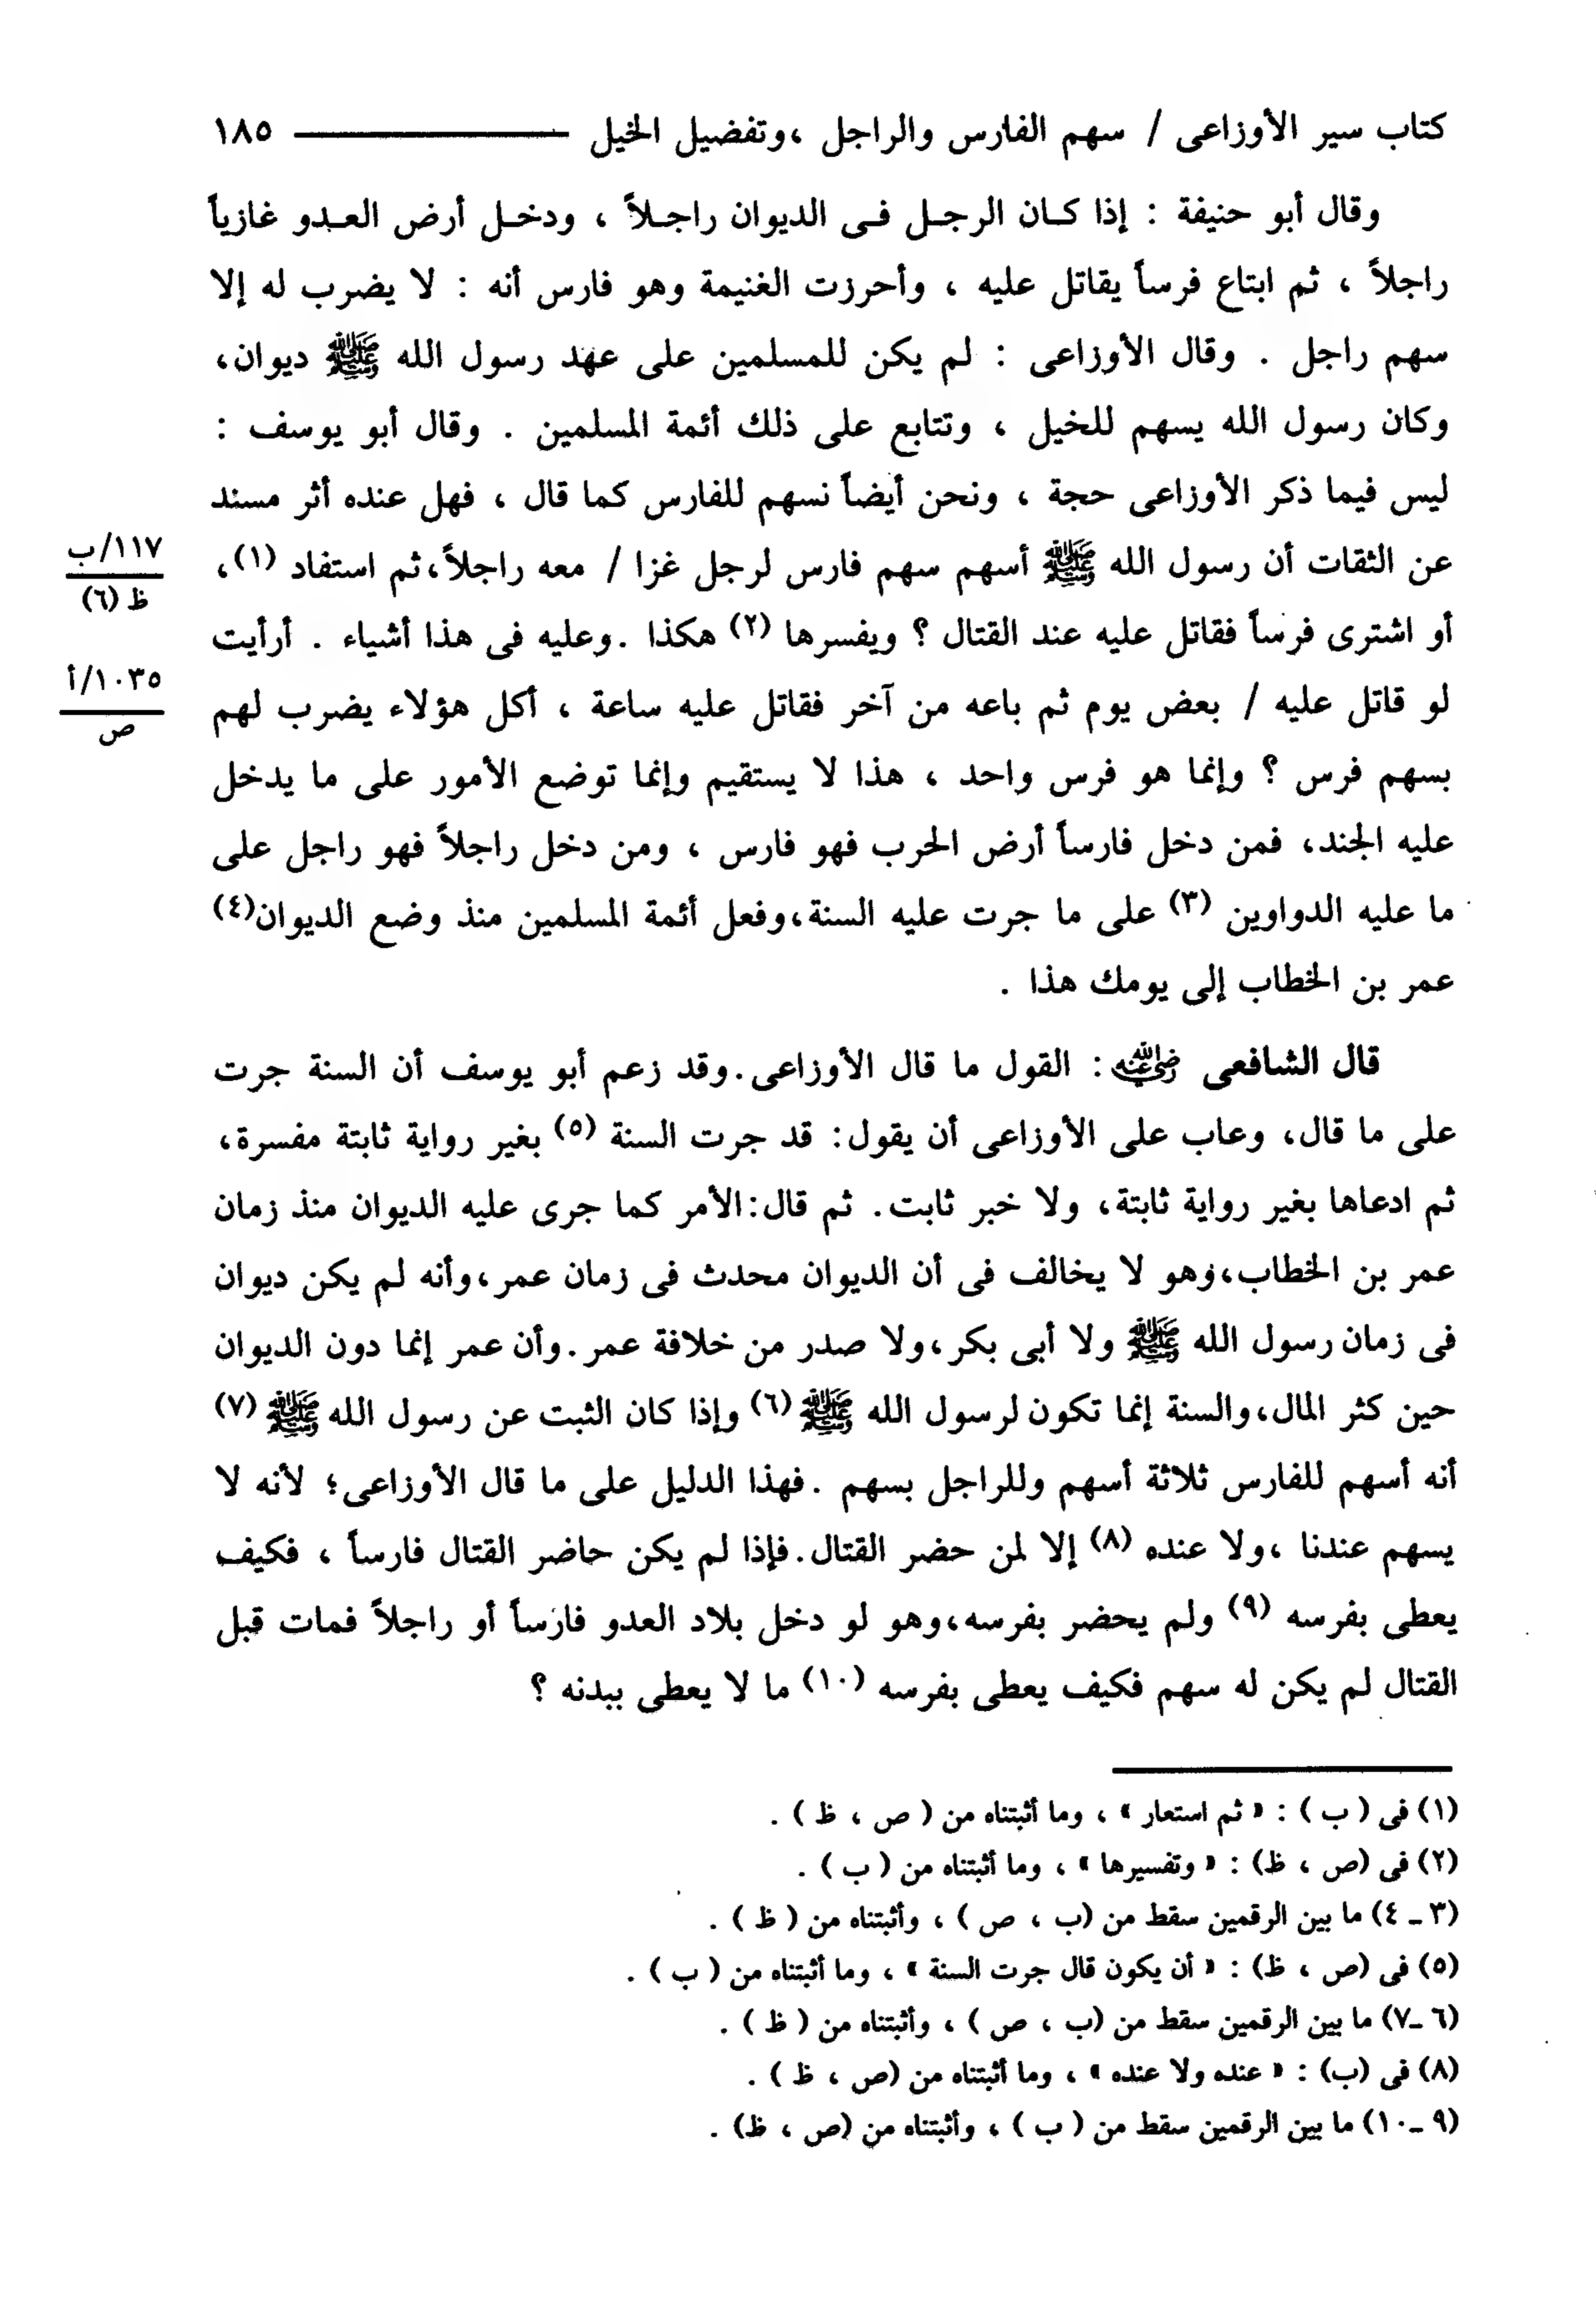 كتاب سير الأوزاعى / سهم الفارس والراجل ،وتفضيل الخيل ١٨٥
وقال أبو حنيفة : إذا كـان الرجـل فـى الديوان راجـلاً ، ودخـل أرض العـدو غازياً
راجلاً ، ثم ابتاع فرساً يقاتل عليه ، وأحرزت الغنيمة وهو فارس أنه : لا يضرب له إلا
سهم راجل . وقال الأوزاعى : لم يكن للمسلمين على عهد رسول الله ﷺ ديوان،
وكان رسول الله يسهم للخيل ، وتتابع على ذلك أئمة المسلمين . وقال أبو يوسف :
ليس فيما ذكر الأوزاعى حجة ، ونحن أيضاً نسهم للفارس كما قال ، فهل عنده أثر مسند
عن الثقات أن رسول الله ﷺ أسهم سهم فارس لرجل غزا / معه راجلاً،ثم استفاد (١)،
١١٧/ب
ظ (٦)
أو اشترى فرساً فقاتل عليه عند القتال ؟ ويفسرها (٢) هكذا .وعليه فى هذا أشياء . أرأيت
لو قاتل عليه / بعض يوم ثم باعه من آخر فقاتل عليه ساعة ، أكل هؤلاء يضرب لهم
١٠٣٥/أ
ص
بسهم فرس ؟ وإنما هو فرس واحد ، هذا لا يستقيم وإنما توضع الأمور على ما يدخل
عليه الجند، فمن دخل فارساً أرض الحرب فهو فارس ، ومن دخل راجلاً فهو راجل على
ما عليه الدواوين (٣) على ما جرت عليه السنة،وفعل أئمة المسلمين منذ وضع الديوان(٤)
عمر بن الخطاب إلى يومك هذا .
قال الشافعى رضي الله عنه : القول ما قال الأوزاعى.وقد زعم أبو يوسف أن السنة جرت
على ما قال، وعاب على الأوزاعى أن يقول: قد جرت السنة (٥) بغير رواية ثابتة مفسرة،
ثم ادعاها بغير رواية ثابتة، ولا خبر ثابت. ثم قال:الأمر كما جرى عليه الديوان منذ زمان
عمر بن الخطاب،وهو لا يخالف فى أن الديوان محدث فى زمان عمر،وأنه لم يكن ديوان
فى زمان رسول الله ﷺ ولا أبى بكر،ولا صدر من خلافة عمر.وأن عمر إنما دون الديوان
حين كثر المال،والسنة إنما تكون لرسول الله ﷺ (٦) وإذا كان الثبت عن رسول الله ﷺ (٧)
أنه أسهم للفارس ثلاثة أسهم وللراجل بسهم .فهذا الدليل على ما قال الأوزاعى؛ لأنه لا
يسهم عندنا ،ولا عنده (٨) إلا لمن حضر القتال.فإذا لم يكن حاضر القتال فارساً ، فكيف
يعطى بفرسه (٩) ولم يحضر بفرسه،وهو لو دخل بلاد العدو فارساً أو راجلاً فمات قبل
القتال لم يكن له سهم فكيف يعطى بفرسه (١٠) ما لا يعطى ببدنه ؟
(١) فى ( ب ) : « ثم استعار » ، وما أثبتناه من ( ص ، ظ ) .
(٢) فى (ص ، ظ) : « وتفسيرها » ، وما أثبتناه من ( ب ) .
(٣ ـ ٤) ما بين الرقمين سقط من (ب ، ص ) ، وأثبتناه من ( ظ ) .
(٥) فى (ص ، ظ) : « أن يكون قال جرت السنة » ، وما أثبتناه من ( ب ) .
(٦ ـ٧) ما بين الرقمين سقط من (ب ، ص ) ، وأثبتناه من ( ظ ) .
(٨) فى (ب) : « عنده ولا عنده » ، وما أثبتناه من (ص ، ظ ) .
(٩ ـ ١٠) ما بين الرقمين سقط من ( ب ) ، وأثبتناه من (ص ، ظ) .